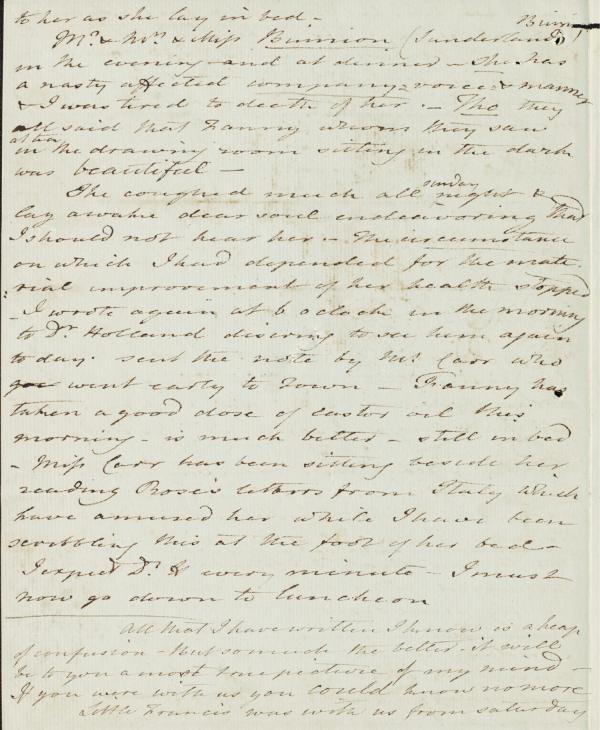 to her as she lay in bed –
Mr. & Mrs. & Miss Binnion (Sunderland)
in the evening – and at dinner – She has
a nasty affected company-voice & manner
& I was tired to death of her. – Tho they
all said that Fanny whom they saw
at tea
in the drawing room sitting in the dark
was beautiful –
She coughed much all sunday night &
lay awake dear soul endeavoring that
I should not hear her – The circumstance
on which I had depended for the mate-
rial improvement of her health stopped
– I wrote again at 6 o clock in the morning
to Dr. Holland desiring to see him again
to day. sent the note by Mr. Carr who
went early to Town – Fanny has
taken a good dose of castor oil this
morning – is much better – still in bed
– Miss Carr has been sitting beside her
reading Rose's letters from Italy which
have amused her while I have been
scribbling this at the foot of her bed –
I expect Dr. H every minute – I must
now go down to luncheon
All that I have written I know is a heap
of confusion – But so much the better. it will
be to you a most true picture of my mind –
If you were with us you could know no more
Little Francis was with us from saturday